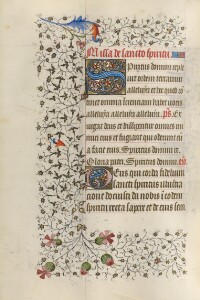 Missa de sancto spiritu
Spiritus domini reple
uit orbem terrarum
alleluya et hoc quod con
tinet omnia scientiam habet vocis
alleluya alleluya alleluya. ps. Ex
urgat deus et dissipentur inimici
eius et fugiant qui oderunt eum
a facie eius. Spiritus domini
Gloria patri. Spiritus domini.
Deus qui corda fidelium
sancti spiritus illustra
tione docuisti da nobis in eodem
spiritu recta sapere et de eius sem